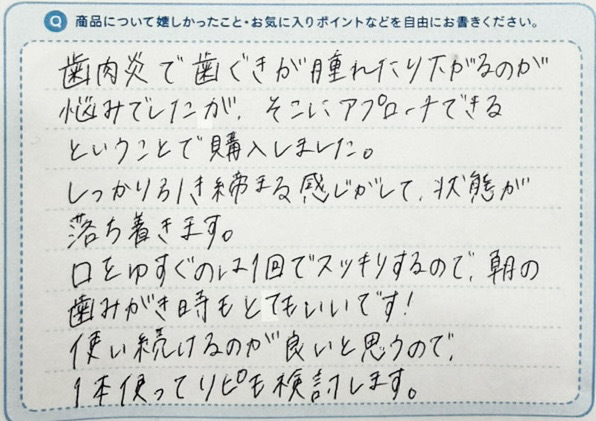 Q 商品について嬉しかったこと・お気に入りポイントなどを自由にお書きください。
歯肉炎で歯ぐきが腫れたり下がるのが
悩みでしたが、そこにアプローチできる
ということで購入しました。
しっかり引き締まる感じがして、状態が
落ち着きます。
口をゆすぐのは1回でスッキリするので、朝の
歯みがき時もとてもいいです!
使い続けるのが良いと思うので、
1本使ってリピも検討します。